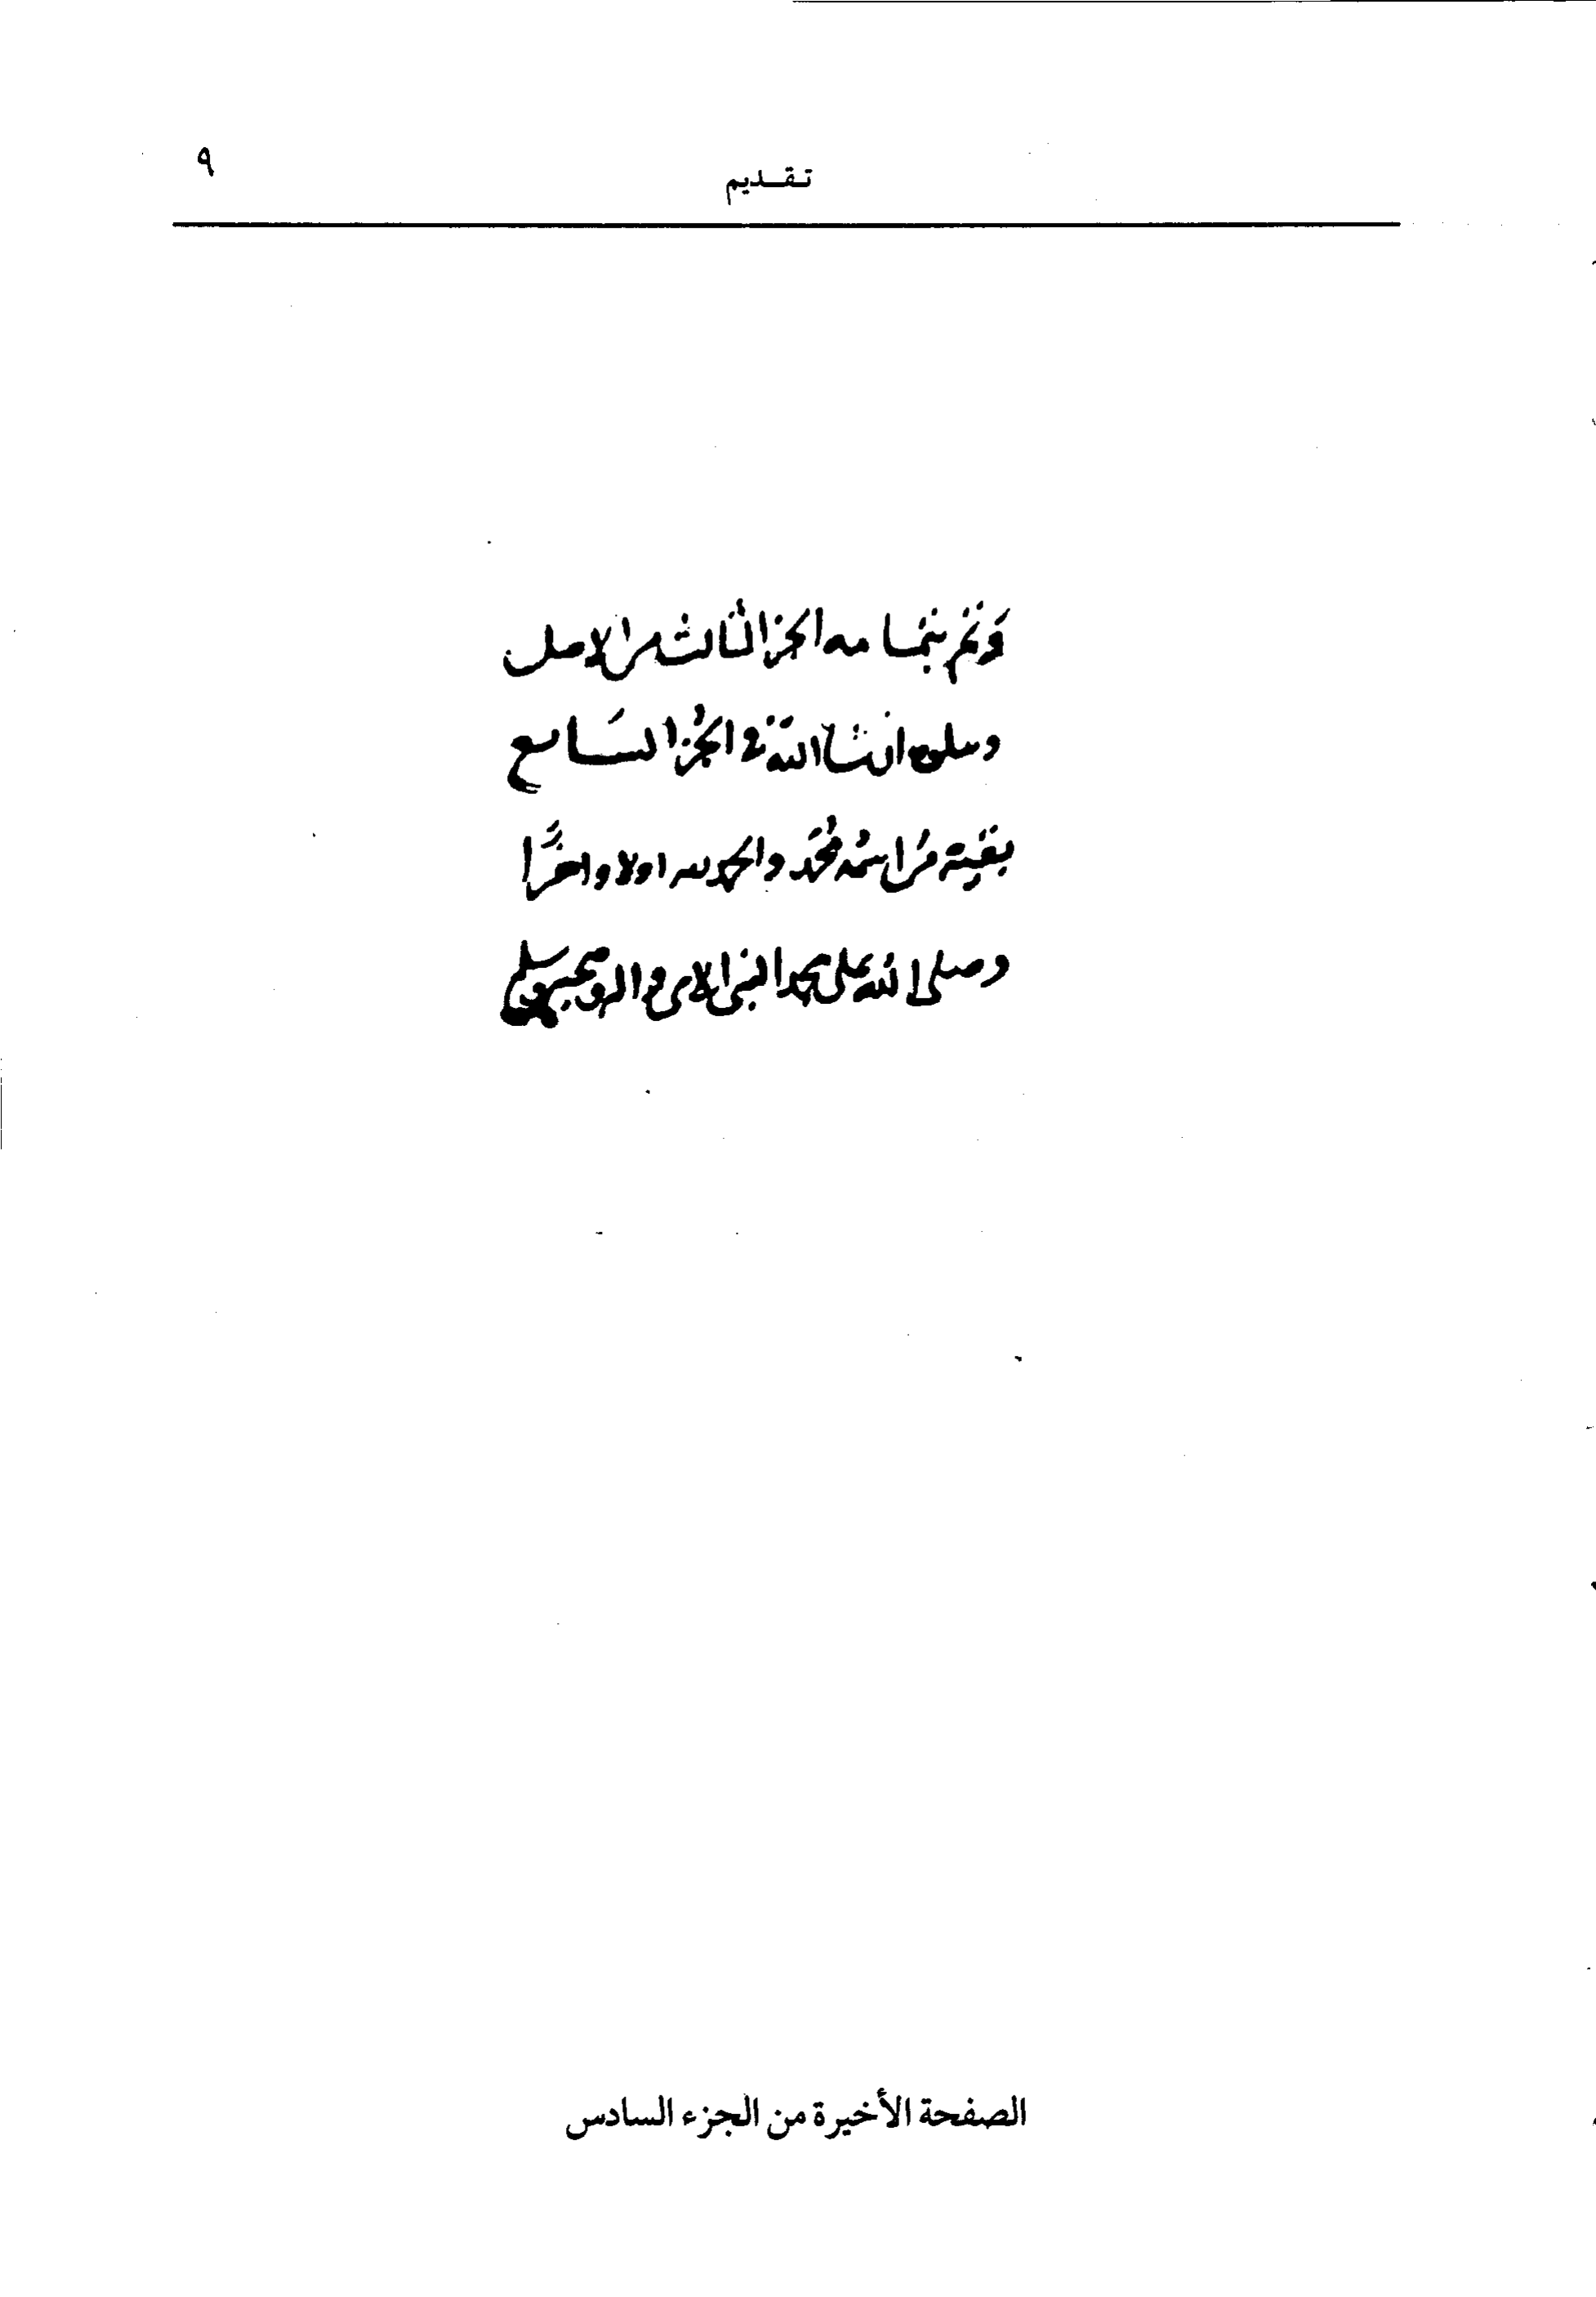 تقديم ٩
وتم بتمامه الجز الثالث من الاصل
وىىلوه ان شا الله فى الجز السابع
بقية من اسمه محمد والحمد لله اولا واخرا
وصلى الله على محمد النبى الامى واله وصحبه وسلم
الصفحة الأخيرة من الجزء السادس